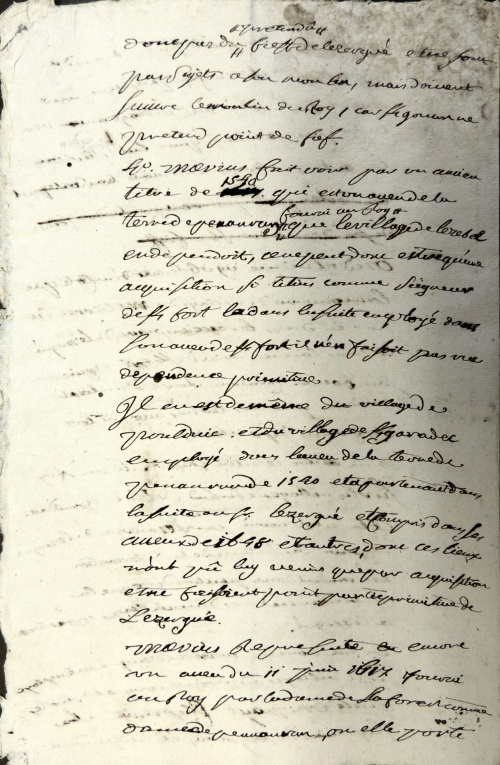 pretendu
donc pas du fief de lezergué et ne sont
pas sujets a son moulin, mais doivent
suivre le moulin du Roy, car Sr gouarne
pretend point de fief.
Sr. Mævius fait voir par un ancien
titre de 1540 qui est un aveu de la
terre de penanrun fourni au Roy que le village de
en dependoit, ce ne peut donc estre qu'une
acquisition si Sr comme Seigneur
de Fort la dans la suite employé dans
son aveu il n'en faisoit pas une
dependence primitive
Il en est de même du village de
et du village de
employé dans l'aveu de la terre de
penanrun de 1540 et apartenant dans
la suite au Sr. Lezergué et compris dans ses
aveux de 1648 et autres, donc ces lieux
n'ont pû luy venir que par acquisition
et ne faisoient point partie primitive de
Lezergué.
Mævius Represente encore
un aveu du 11 juin 1617 fourni
au Roy par la dame de la forest comme
dame de penanrun, ou elle porte